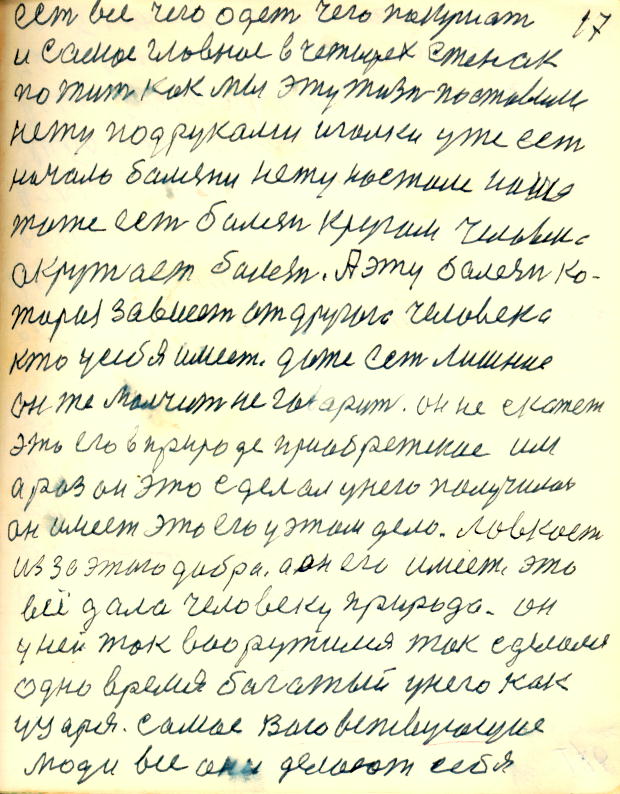 ест все чего одет чего покушат 17
и самое гловное в четырех стенах
пожит как мы эту жизн поставили
нету под руками иголки уже ест
начало балезни нету настали
тоже ест балезн кругом человека
окружает балезн. А эту балезн ко-
торая зависет от другога человека
кто у себя имеет. даже ест лишние
он же молчит не гаварит. он не скажет
это его в природе приобретение им
а раз он это сделал у него палучилос
он имеет это его у этом дело. ловкост
из за этого добра. а он его имеет. это
всё дала человеку природа. он
у ней так вооружился так сделался
одно время багатый у него как
у царя. самое
люди все они делают себя